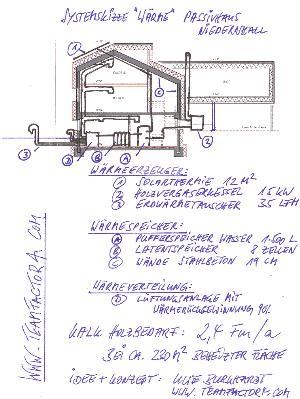 SYSTEMSKIZZE "WÄRME" PASSIVHAUS
NIEDERNHALL
1
C
3
2
B
A
2
WÄRMEERZEUGER:
1 SOLARTHERMIE 12 M²
2 HOLZVERGASERKESSEL 15 KW
3 ERDWÄRMETAUSCHER 35 LFM
WÄRMESPEICHER:
A PUFFERSPEICHER WASSER 1.500 L
B LATENTSPEICHER 8 ZELLEN
C WÄNDE STAHLBETON 19 CM
WÄRMEVERTEILUNG:
D LÜFTUNGSANLAGE MIT
WÄRMERÜCKGEWINNUNG 90%
KALK HOLZBEDARF: 2,4 Fm/a
BEI CA. 220 M² BEHEIZTER FLÄCHE
IDEE + KONZEPT: UWE BURKHARDT
WWW.TEAMFACTORY.COM
WWW.TEAMFACTORY.COM